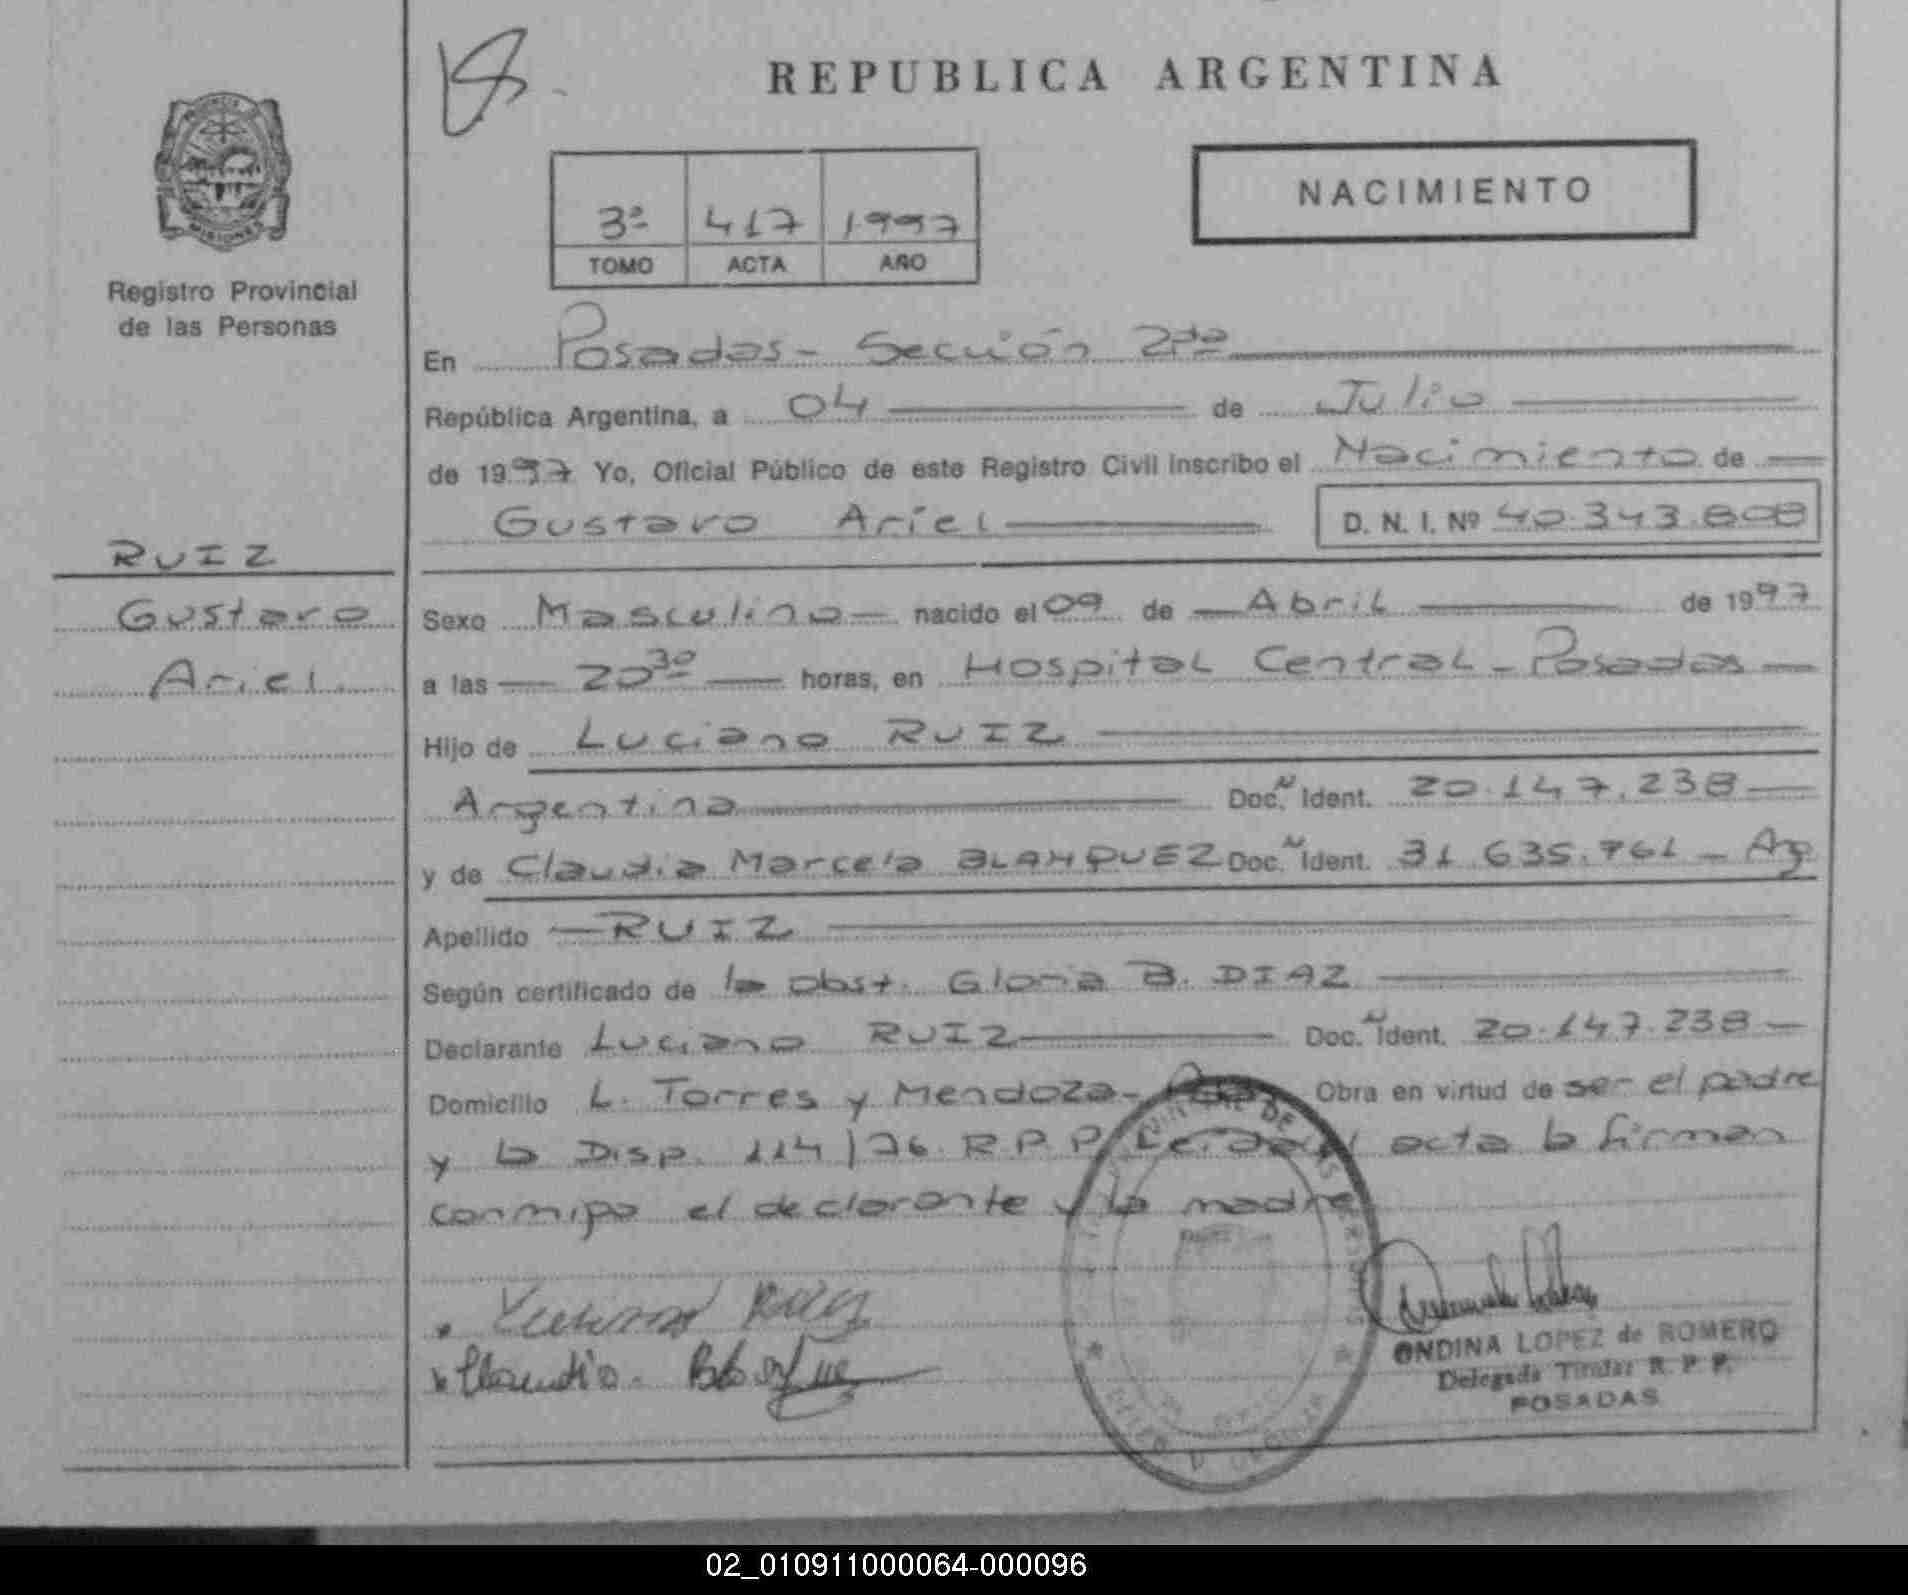 REPUBLICA ARGENTINA
MISIONES
Registro Provincial
de las Personas
NACIMIENTO
3º 417 1997
TOMO ACTA AÑO
En Posadas - Sección 2da
República Argentina, a 04 de Julio
de 1997 Yo, Oficial Público de este Registro Civil inscribo el Nacimiento de
Gustavo Ariel D. N. I. Nº 40.343.808
RUIZ
Gustavo
Ariel
Sexo Masculino nacido el 09 de Abril de 1997
a las 20 30 horas, en Hospital Central - Posadas
Hijo de Luciano RUIZ
Argentina Doc. N Ident. 20.147.238
y de Claudia Marcela BLANQUEZ Doc. N Ident. 31 635.761 - Arg
Apellido RUIZ
Según certificado de la obst. Gloria B. DIAZ
Declarante Luciano RUIZ Doc. N Ident. 20.147.238
Domicilio L. Torres y Mendoza - Obra en virtud de ser el padre
y la Disp. 114/76 R.P.P. Leida el acta la firman
conmigo el declarante y la madre
Luciano Ruiz
Claudia
ONDINA LOPEZ de ROMERO
Delegada Titular R. P. P.
POSADAS
02_010911000064-000096